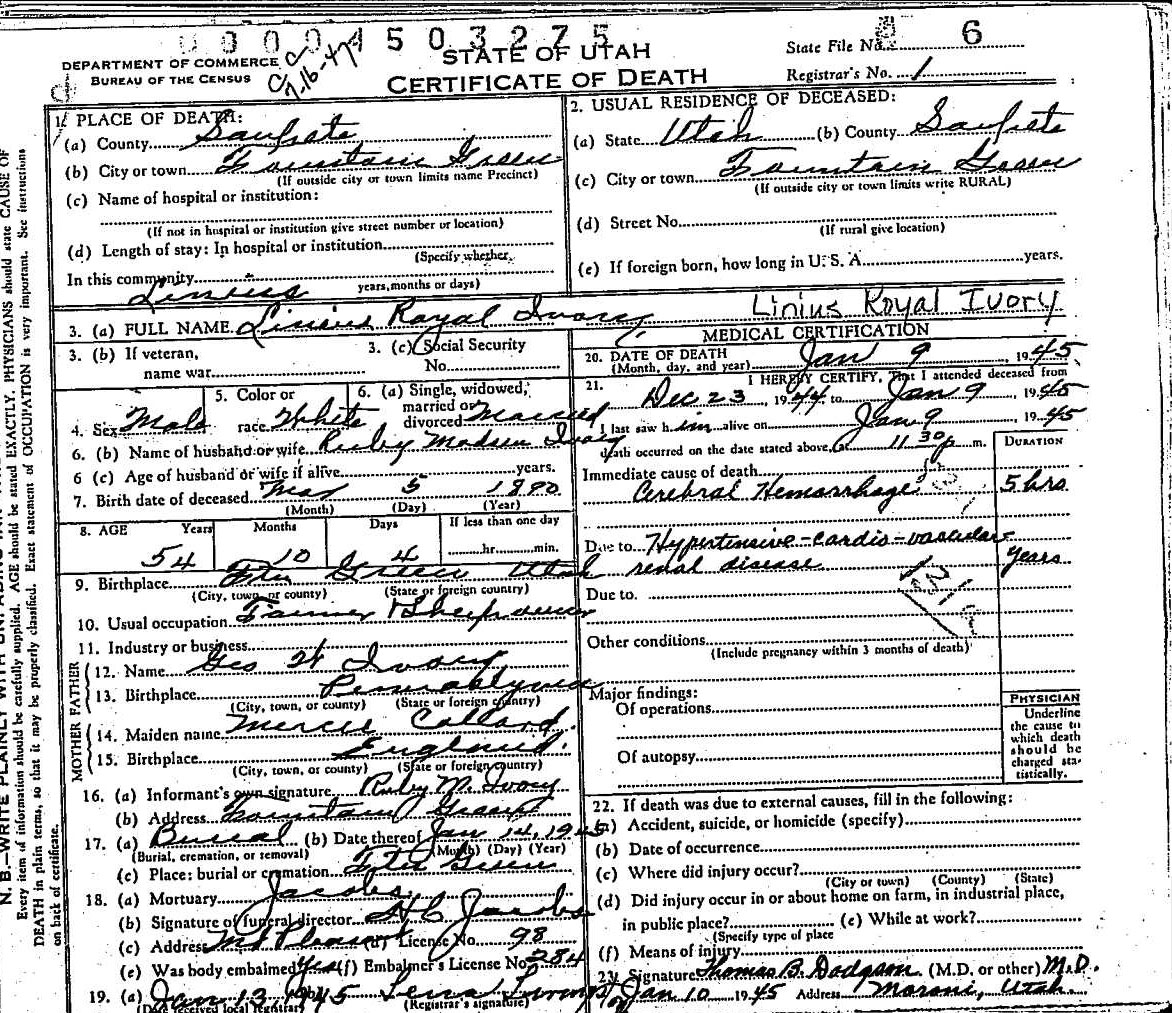 0004503275
STATE OF UTAH
CERTIFICATE OF DEATH
DEPARTMENT OF COMMERCE
BUREAU OF THE CENSUS
7-16-47
State File No. 6
Registrar's No. 1
1. PLACE OF DEATH:
(a) County Sanpete
(b) City or town Fountain Green
(If outside city or town limits name Precinct)
(c) Name of hospital or institution:
(If not in hospital or institution give street number or location)
(d) Length of stay: In hospital or institution
(Specify whether,
In this community years, months or days)
2. USUAL RESIDENCE OF DECEASED:
(a) State Utah (b) County Sanpete
(c) City or town Fountain Green
(If outside city or town limits write RURAL)
(d) Street No.
(If rural give location)
(e) If foreign born, how long in U. S. A. years.
Linius
3. (a) FULL NAME Linius Royal Ivory Linius Royal Ivory
3. (b) If veteran, name war
3. (c) Social Security No.
4. Sex Male
5. Color or race White
6. (a) Single, widowed, married or divorced Married
6. (b) Name of husband or wife Ruby Madsen Ivory
6 (c) Age of husband or wife if alive years.
7. Birth date of deceased Mar 5 1890
(Month) (Day) (Year)
8. AGE Years Months Days If less than one day
54 10 4 hr. min.
9. Birthplace Ftn Green Utah
(City, town, or county) (State or foreign country)
10. Usual occupation Farmer & Sheepowner
11. Industry or business
FATHER
12. Name Geo W Ivory
13. Birthplace Pennsylvania
(City, town, or county) (State or foreign country)
MOTHER
14. Maiden name Mercie Collard
15. Birthplace England.
(City, town, or county) (State or foreign country)
16. (a) Informant's own signature Ruby M. Ivory
(b) Address Fountain Green
17. (a) Burial (b) Date thereof Jan 14, 1945
(Burial, cremation, or removal) (Month) (Day) (Year)
(c) Place: burial or cremation Ftn Green
18. (a) Mortuary Jacobs
(b) Signature of funeral director H C Jacobs
(c) Address Mt Pleasant (d) License No. 98
(e) Was body embalmed yes (f) Embalmer's License No. 284
19. (a) Jan 13, 1945 (b) Lena
(Date received local registrar) (Registrar's signature)
MEDICAL CERTIFICATION
20. DATE OF DEATH
(Month, day, and year) Jan 9, 1945
21. I HEREBY CERTIFY, That I attended deceased from
Dec 23, 1944 to Jan 9, 1945
I last saw him alive on Jan 9 1945
death occurred on the date stated above, at 11 30 p m.
DURATION
Immediate cause of death
Cerebral Hemorrhage 5 hrs
Due to Hypertensive-cardio-vascular
renal disease years
Due to.
131a
Other conditions
(Include pregnancy within 3 months of death)
Major findings:
Of operations
Of autopsy
PHYSICIAN
Underline
the cause to
which death
should be
charged sta-
tistically.
22. If death was due to external causes, fill in the following:
(a) Accident, suicide, or homicide (specify)
(b) Date of occurrence
(c) Where did injury occur?
(City or town) (County) (State)
(d) Did injury occur in or about home on farm, in industrial place,
in public place? (e) While at work?
(Specify type of place
(f) Means of injury
23. Signature Thomas B. Dodgson. (M.D. or other) M.D.
Jan 10 1945 Address Moroni, Utah
Every item of information should be carefully supplied. AGE should be stated EXACTLY. PHYSICIANS should state CAUSE OF
DEATH in plain terms, so that it may be properly classified. Exact statement of OCCUPATION is very important. See instructions
on back of certificate.